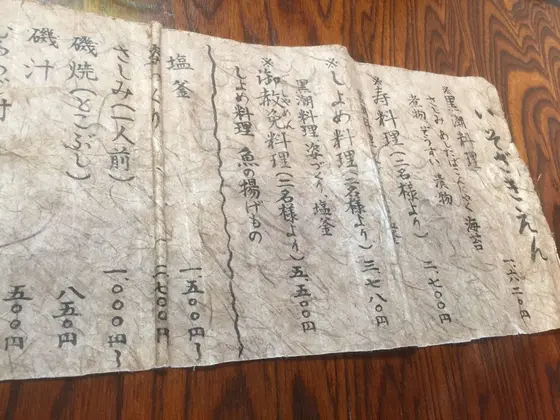 いそざきえん
※黒潮料理 一、六二〇円
さしみ あしたばこんにゃく 海苔
煮物 ぞうすい 漬物
※寿料理(二名様より) 二、七〇〇円
※しよめ料理(二名様より) 三、七八〇円
黒潮料理 姿づくり、塩釜
※御赦免料理(二名様より) 五、五〇〇円
しよめ料理 魚の揚げもの
塩釜 一、五〇〇円〜
姿つくり 二、七〇〇円〜
さしみ(一人前) 一、〇〇〇円〜
磯焼(とこぶし) 八五〇円
磯汁 五〇〇円